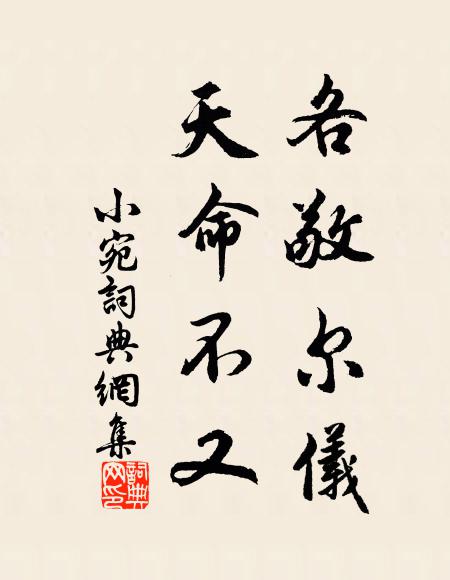 各敬尔儀
天命不又
小宛詞典網集
詞典网印